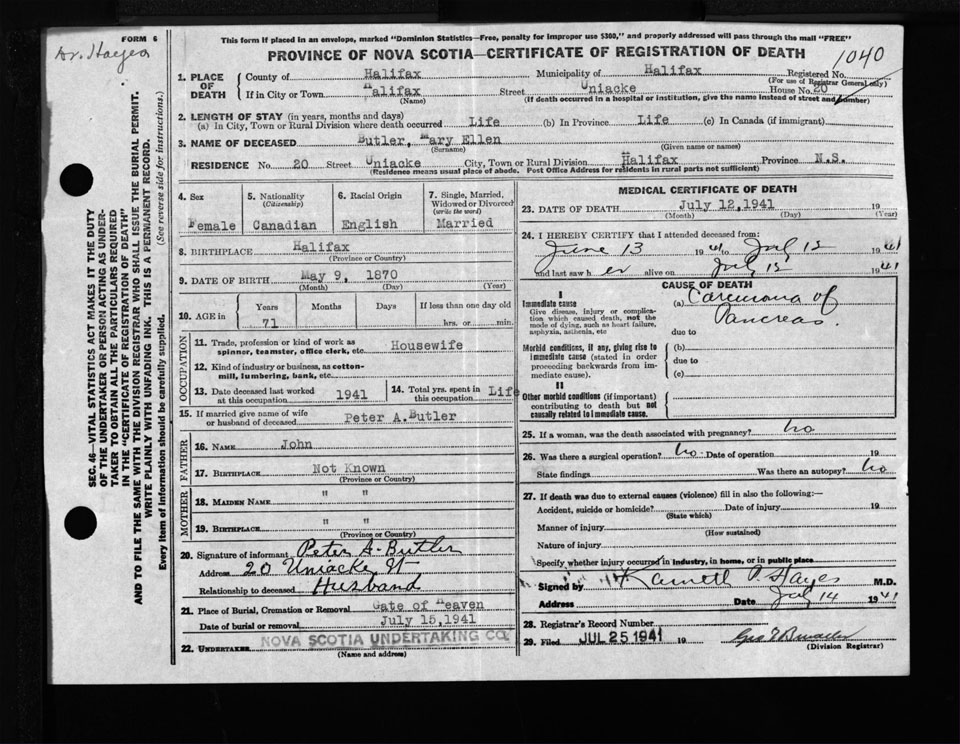 FORM 6
Dr. Hayes
This form if placed in an envelope, marked "Dominion Statistics—Free, penalty for improper use $300," and properly addressed will pass through the mail "FREE"
PROVINCE OF NOVA SCOTIA—CERTIFICATE OF REGISTRATION OF DEATH
1040
SEC. 46—VITAL STATISTICS ACT MAKES IT THE DUTY
OF THE UNDERTAKER OR PERSON ACTING AS UNDER-
TAKER TO OBTAIN ALL THE PARTICULARS REQUIRED
IN THE "CERTIFICATE OF REGISTRATION OF DEATH"
AND TO FILE THE SAME WITH THE DIVISION REGISTRAR WHO SHALL ISSUE THE BURIAL PERMIT.
WRITE PLAINLY WITH UNFADING INK. THIS IS A PERMANENT RECORD.
Every item of information should be carefully supplied. (See reverse side for instructions.)
1. PLACE OF DEATH
County of Halifax Municipality of Halifax Registered No.
(For use of Registrar General only)
If in City or Town Halifax Street Uniacke House No. 20
(Name) (If death occurred in a hospital or institution, give the name instead of street and number)
2. LENGTH OF STAY (in years, months and days)
(a) In City, Town or Rural Division where death occurred Life (b) In Province Life (c) In Canada (if immigrant)
3. NAME OF DECEASED Butler, Mary Ellen
(Surname) (Given name or names)
RESIDENCE No. 20 Street Uniacke City, Town or Rural Division Halifax Province N.S.
(Residence means usual place of abode. Post Office Address for residents in rural parts not sufficient)
4. Sex
Female
5. Nationality
(Citizenship)
Canadian
6. Racial Origin
English
7. Single, Married,
Widowed or Divorced
(write the word)
Married
8. BIRTHPLACE Halifax
(Province or Country)
9. DATE OF BIRTH May 9, 1870
(Month) (Day) (Year)
10. AGE in
Years Months Days If less than one day old
71 hrs. or min.
OCCUPATION
11. Trade, profession or kind of work as
spinner, teamster, office clerk, etc. Housewife
12. Kind of industry or business, as cotton-
mill, lumbering, bank, etc.
13. Date deceased last worked
at this occupation 1941
14. Total yrs. spent in
this occupation Life
15. If married give name of wife
or husband of deceased Peter A. Butler
FATHER
16. NAME John
17. BIRTHPLACE Not Known
(Province or Country)
MOTHER
18. MAIDEN NAME " "
19. BIRTHPLACE " "
(Province or Country)
20. Signature of informant Peter A. Butler
Address 20 Uniacke St
Relationship to deceased Husband
21. Place of Burial, Cremation or Removal Gate of Heaven
Date of burial or removal July 15, 1941
22. UNDERTAKER NOVA SCOTIA UNDERTAKING CO.
(Name and address)
MEDICAL CERTIFICATE OF DEATH
23. DATE OF DEATH July 12, 1941
(Month) (Day) (Year)
24. I HEREBY CERTIFY that I attended deceased from:
June 13 1941 July 12 1941
and last saw her alive on July 12 1941
CAUSE OF DEATH
I
Immediate cause
Give disease, injury or complica-
tion which caused death, not the
mode of dying, such as heart failure,
asphyxia, asthenia, etc
(a) Carcinoma of
Pancreas.
due to
Morbid conditions, if any, giving rise to
immediate cause (stated in order
proceeding backwards from im-
mediate cause).
(b)
due to
(c)
II
Other morbid conditions (if important)
contributing to death but not
causally related to immediate cause.
25. If a woman, was the death associated with pregnancy? No
26. Was there a surgical operation? No. Date of operation 19
State findings Was there an autopsy? No
27. If death was due to external causes (violence) fill in also the following:—
Accident, suicide or homicide? Date of injury 19
(State which)
Manner of injury
(How sustained)
Nature of injury
Specify whether injury occurred in industry, in home, or in public place
Signed by P. Hayes M.D.
Address Date July 14 1941
28. Registrar's Record Number
29. Filed JUL 25 1941 19
(Division Registrar)